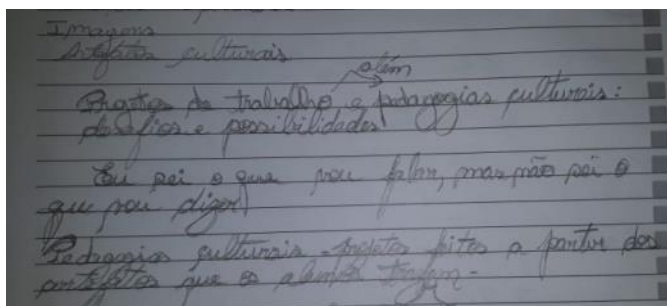 Imagens
Artefatos culturais
além
Projetos de trabalho e pedagogias culturais:
desafios e possibilidades
Eu sei o que vou falar, mas não sei o
que vou dizer!
Pedagogias culturais - projetos feitos a partir dos
artefatos que os alunos trazem -